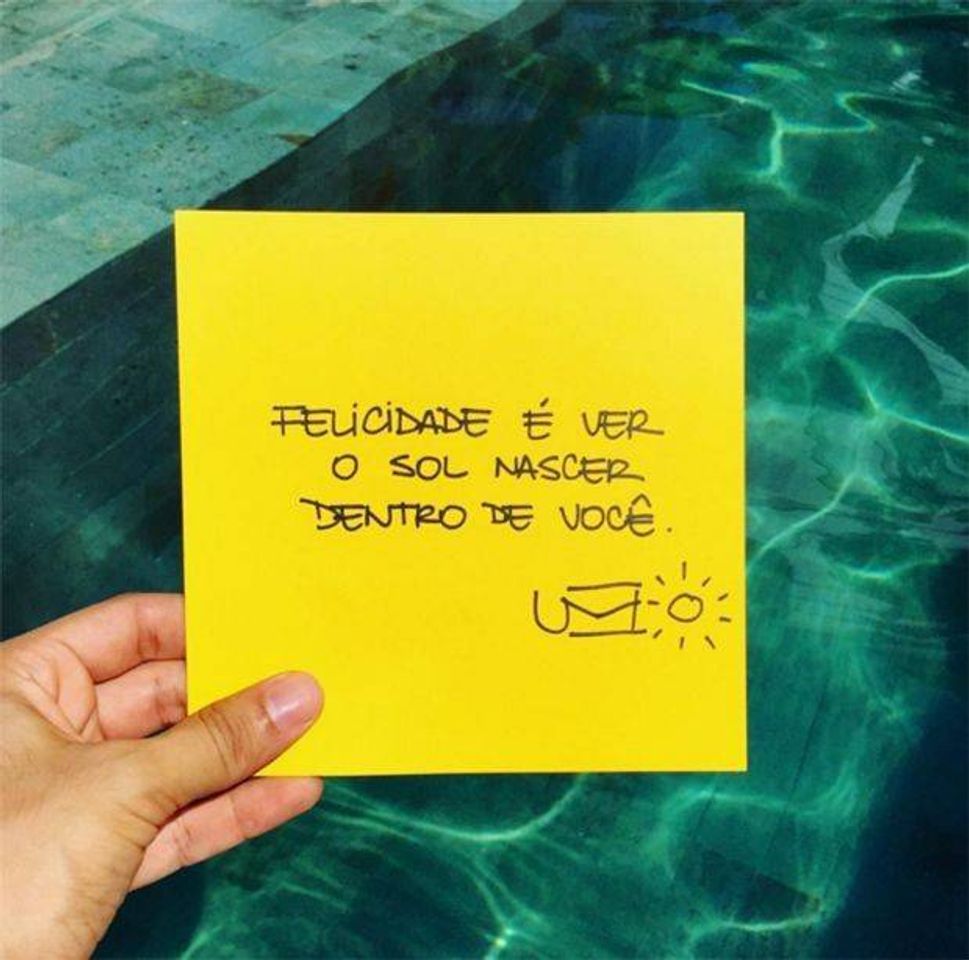 FELICIDADE É VER
O SOL NASCER
DENTRO DE VOCÊ.